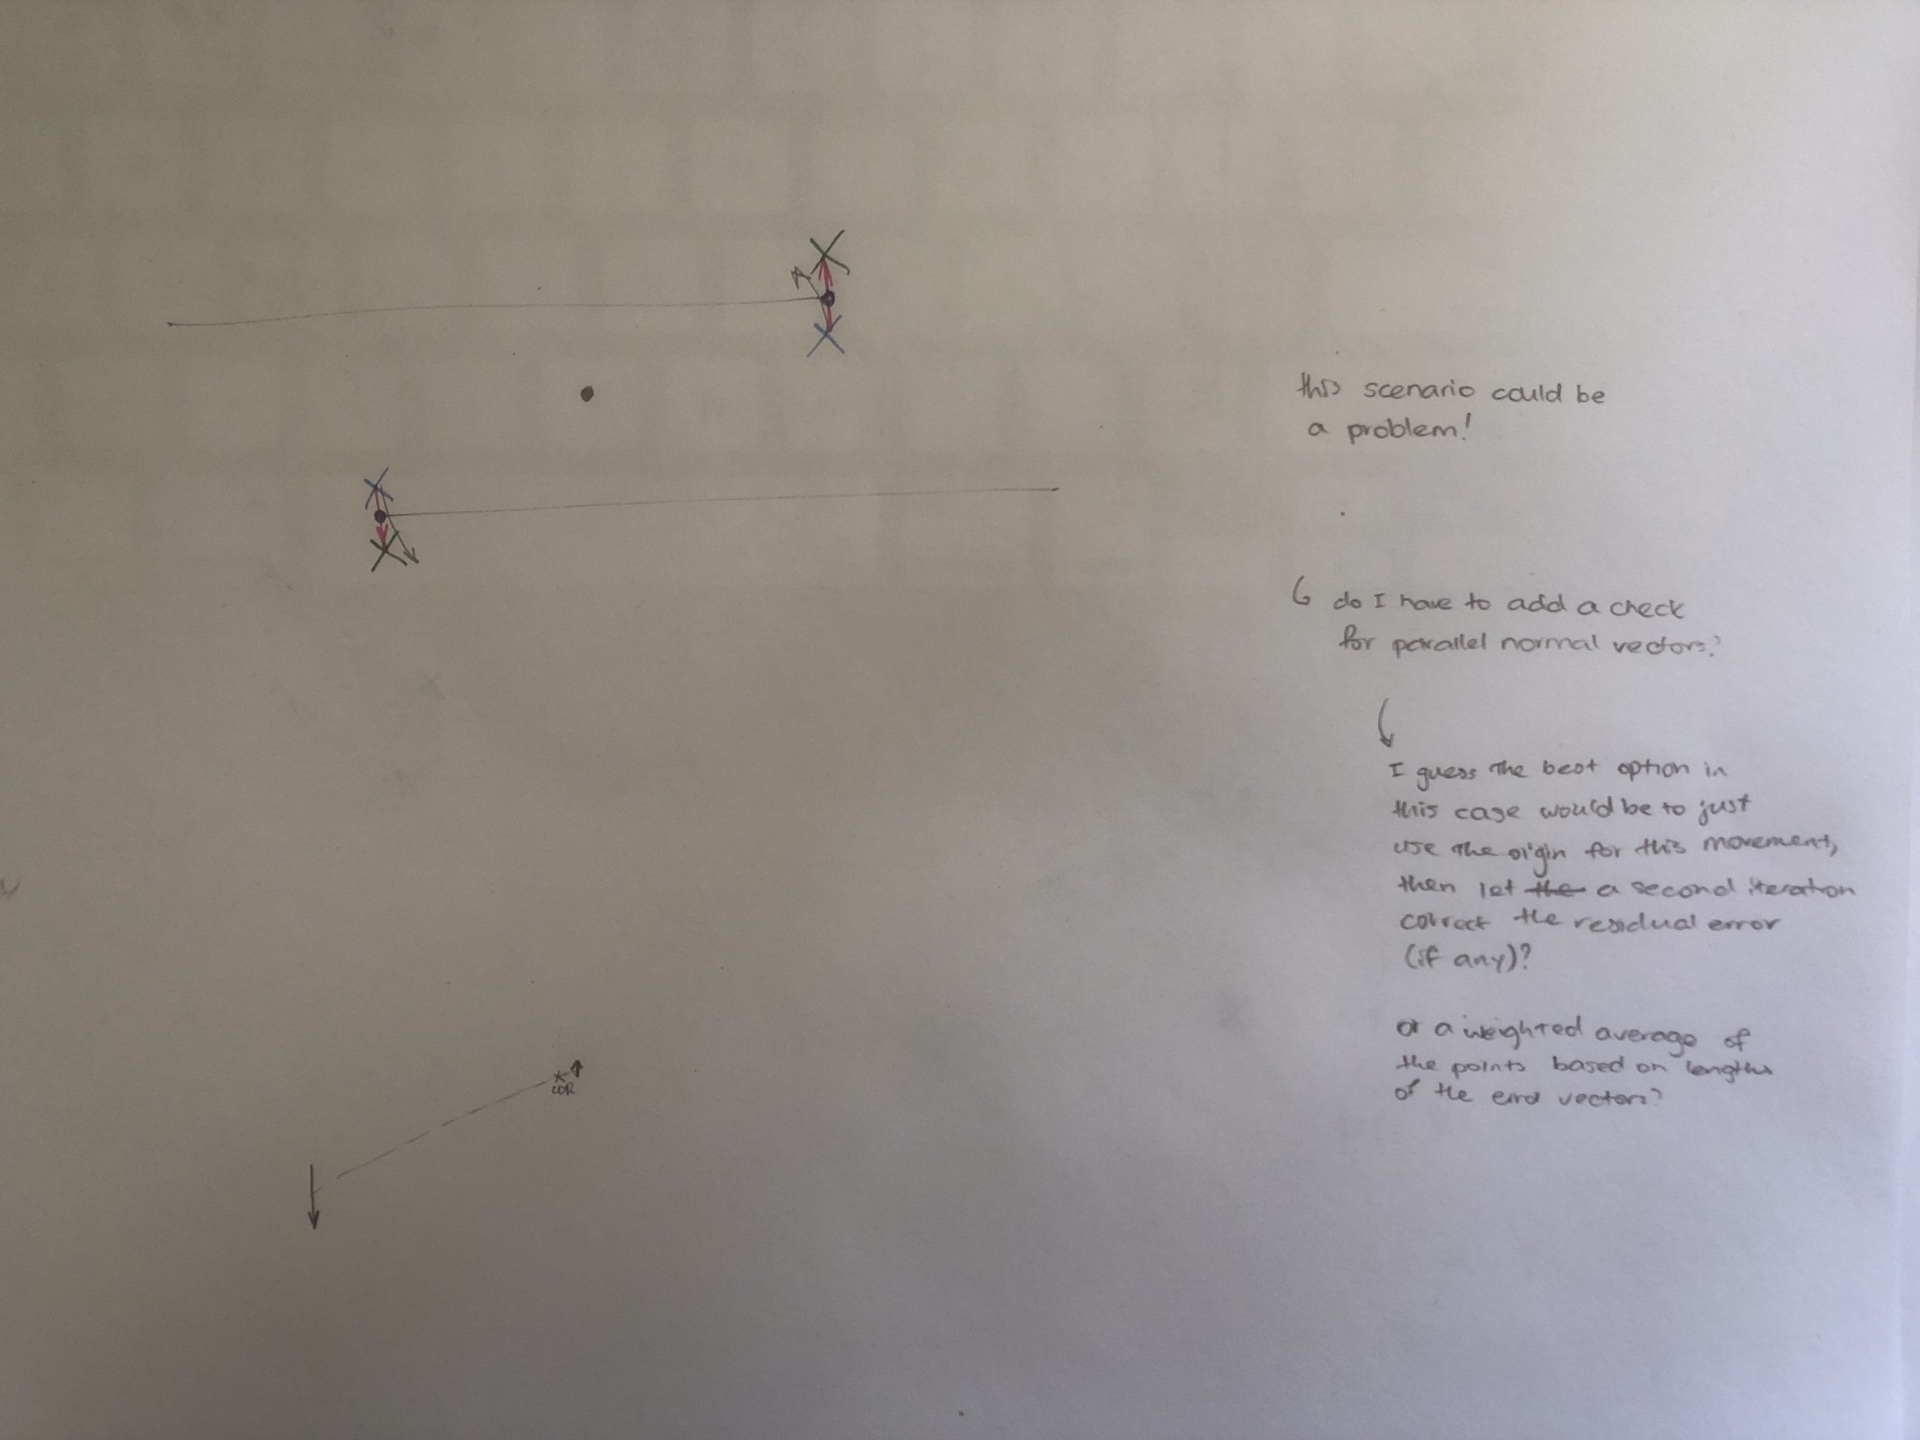 this scenario could be
a problem!
do I have to add a check
for parallel normal vectors?
I guess the best option in
this case would be to just
use the origin for this movement,
then let the a second iteration
correct the residual error
(if any)?
or a weighted average of
the points based on lengths
of the error vectors?
COR